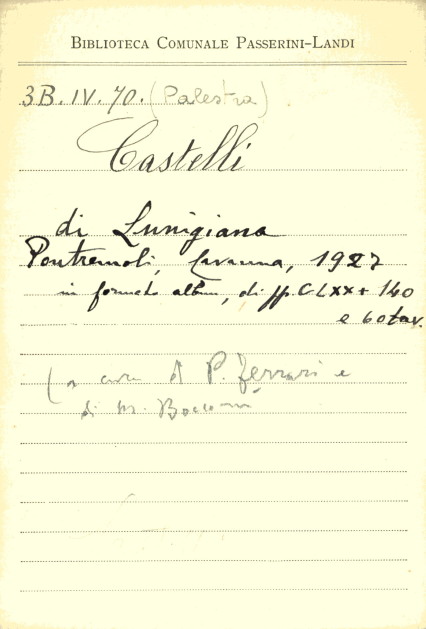 BIBLIOTECA COMUNALE PASSERINI-LANDI
3B.IV.70. (Palestra)
Castelli
di Lunigiana
Pontremoli, Cavanna, 1927
in formato album, di pp. CLXX + 140
e 60 tav.
(a cura di P. Ferrari e
di M. Bocconi